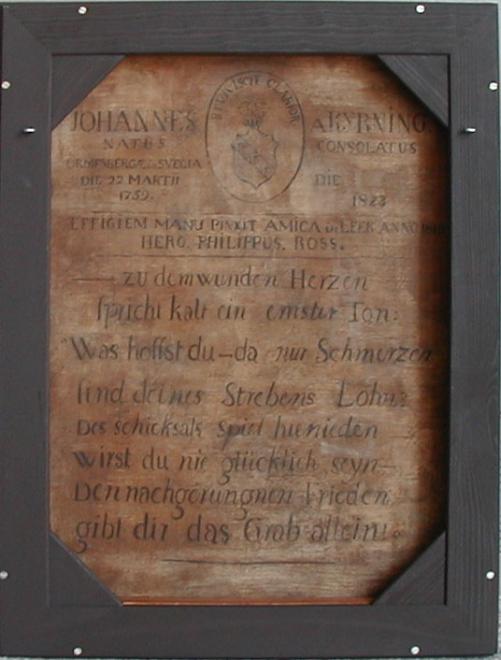 JOHANNES a KYRNING
NATUS CONSOLATUS
SVECIA
DIE 22 MARTII DIE
1759. 1823
EFFIGIEM MANU PINXIT AMICA ANNO
HERO. PHILIPPUS. ROSS.
— zu dem wunden Herzen
spricht kalt ein ernster Ton:
Was hoffst du – da nur Schmerzen
sind deines Strebens Lohn?
Des schicksals spiel hienieden
wirst du nie glücklich seyn –
Den nachgerungnen Frieden
gibt dir das Grab allein!